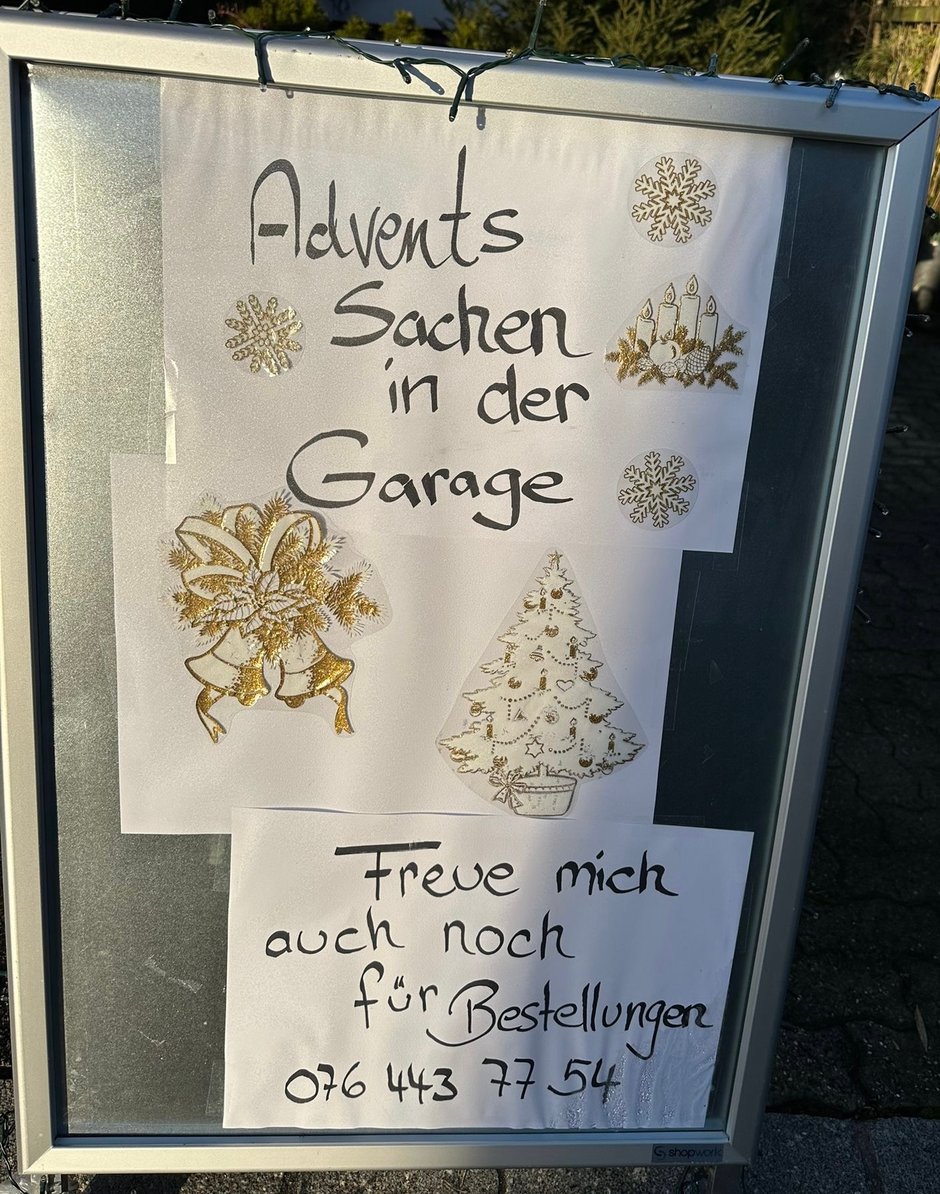 Advents
Sachen
in der
Garage
Freue mich
auch noch
für Bestellungen
076 443 77 54
shopworld